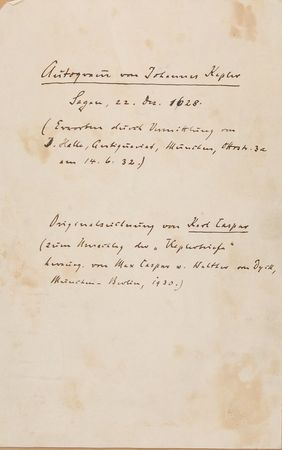 Autogramm von Johannes Kepler
Sagan, 22. Dez. 1628.
(Erworben durch Vermittlung von
J. Halle, Antiquariat, München, Ottostr. 3a
am 14. 6. 32.)
Originalzeichnung von Karl Caspar
(zum Umschlag der „Keplerbriefe"
herausg. von Max Caspar u. Walther von Dyck,
München-Berlin, 1930.)